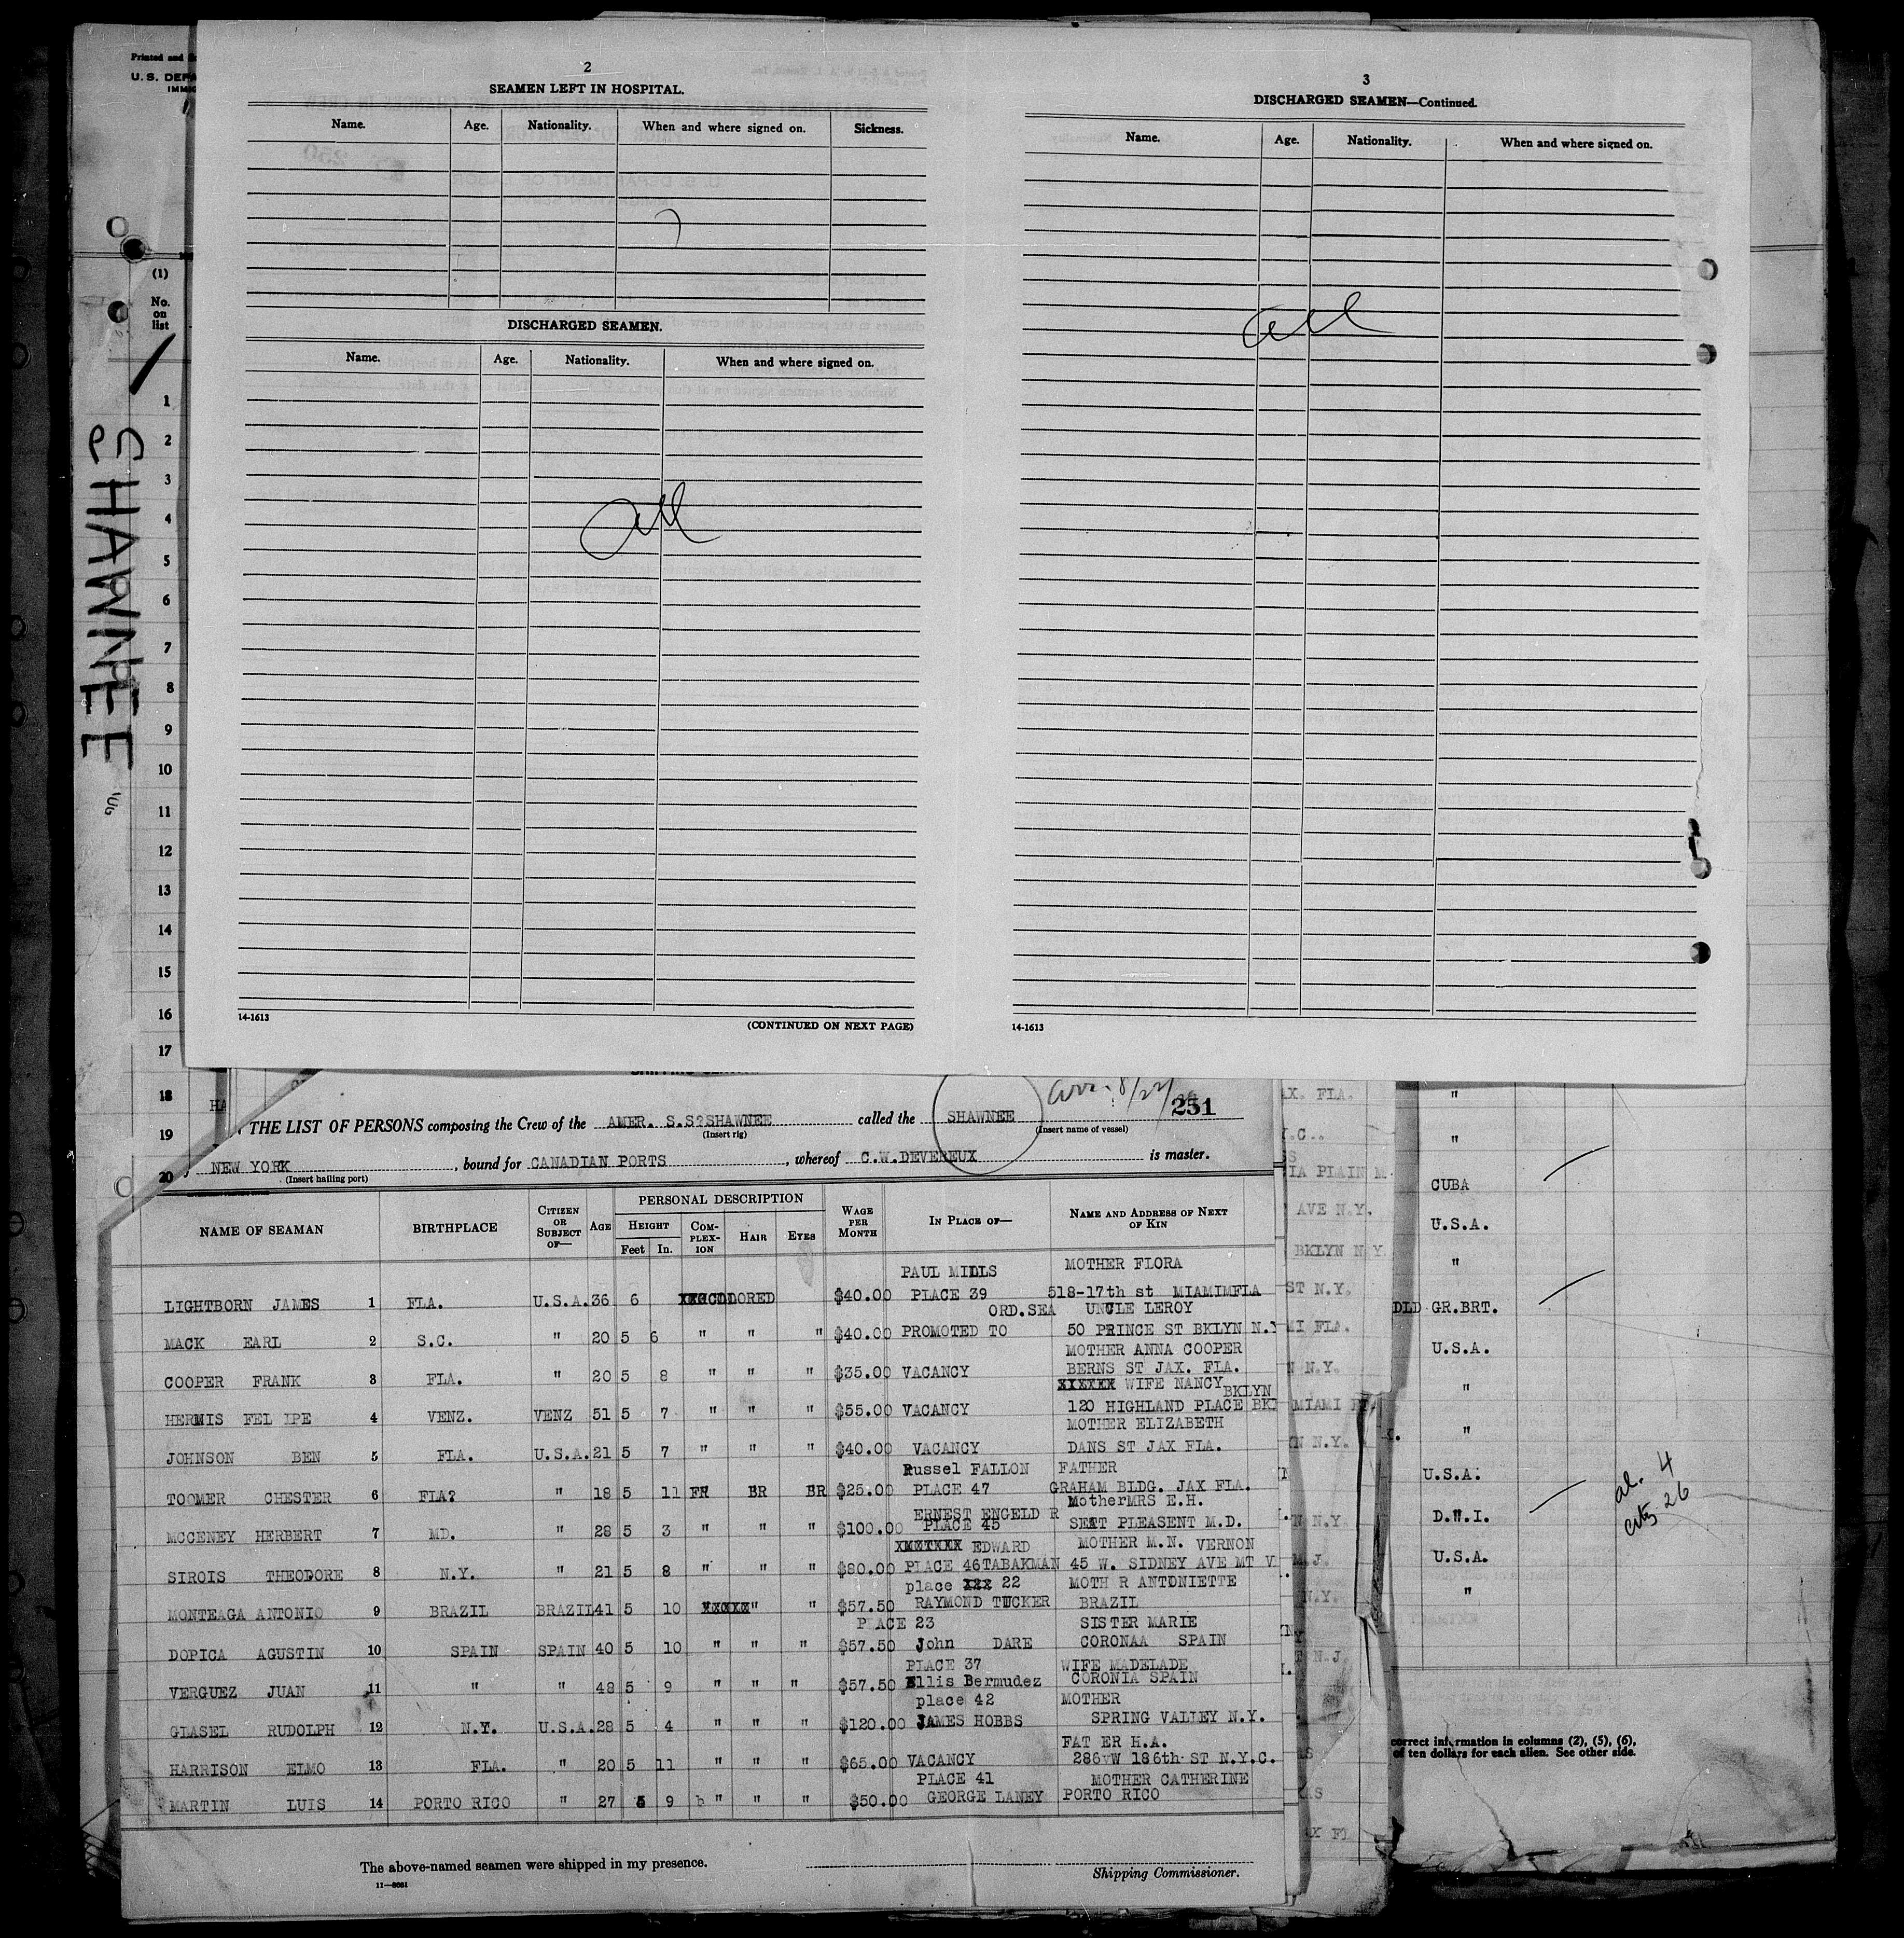 Printed and
U. S. DEPA
IMMIG
(1)
No.
on
list
SHAWNEE
1
2
3
4
5
6
7
8
9
10
11
12
13
14
15
16
17
18
19
20
2
SEAMEN LEFT IN HOSPITAL.
Name. Age. Nationality. When and where signed on. Sickness.
DISCHARGED SEAMEN.
Name. Age. Nationality. When and where signed on.
all
14-1613 (CONTINUED ON NEXT PAGE)
3
DISCHARGED SEAMEN—Continued.
Name. Age. Nationality. When and where signed on.
all
14-1613
251
THE LIST OF PERSONS composing the Crew of the AMER. S.S?SHAWNEE called the SHAWNEE
(Insert rig) (Insert name of vessel)
NEW YORK , bound for CANADIAN PORTS , whereof C.W.DEVEREUX is master.
(Insert hailing port)
NAME OF SEAMAN BIRTHPLACE CITIZEN OR SUBJECT OF— AGE PERSONAL DESCRIPTION HEIGHT Feet In. COMPLEXION HAIR EYES WAGE PER MONTH IN PLACE OF— NAME AND ADDRESS OF NEXT OF KIN
PAUL MILLS MOTHER FLORA
LIGHTBORN JAMES 1 FLA. U.S.A. 36 6 COLORED $40.00 PLACE 39 518-17th st MIAMIMFLA
ORD.SEA UNCLE LEROY
MACK EARL 2 S.C. " 20 5 6 " " " $40.00 PROMOTED TO 50 PRINCE ST BKLYN N.Y
MOTHER ANNA COOPER
COOPER FRANK 3 FLA. " 20 5 8 " " " $35.00 VACANCY BERNS ST JAX. FLA.
XXXXXX WIFE NANCY BKLYN
HERMIS FEL IPE 4 VENZ. VENZ 51 5 7 " " " $55.00 VACANCY 120 HIGHLAND PLACE BKI
MOTHER ELIZABETH
JOHNSON BEN 5 FLA. U.S.A. 21 5 7 " " " $40.00 VACANCY DANS ST JAX FLA.
Russel FALLON FATHER
TOOMER CHESTER 6 FLA? " 18 5 11 FR BR BR $25.00 PLACE 47 GRAHAM BLDG. JAX FLA.
ERNEST ENGELD R MotherMRS E.H.
MCCENEY HERBERT 7 MD. " 28 5 3 " " " $100.00 PLACE 45 SEAT PLEASENT M.D.
EDWARD MOTHER M.N. VERNON
SIROIS THEODORE 8 N.Y. " 21 5 8 " " " $80.00 PLACE 46TABAKMAN 45 W. SIDNEY AVE MT V
place XXX 22 MOTH R ANTONIETTE
MONTEAGA ANTONIO 9 BRAZIL BRAZIL 41 5 10 XXXXX" " $57.50 RAYMOND TUCKER BRAZIL
PLACE 23 SISTER MARIE
DOPICA AGUSTIN 10 SPAIN SPAIN 40 5 10 " " " $57.50 John DARE CORONAA SPAIN
PLACE 37 WIFE MADELADE
VERGUEZ JUAN 11 " " 48 5 9 " " " $57.50 Ellis Bermudez CORONIA SPAIN
place 42 MOTHER
GLASEL RUDOLPH 12 N.Y. U.S.A. 28 5 4 " " " $120.00 JAMES HOBBS SPRING VALLEY N.Y.
FAT ER H.A.
HARRISON ELMO 13 FLA. " 20 5 11 " " " $65.00 VACANCY 286 W 186th ST N.Y.C.
PLACE 41 MOTHER CATHERINE
MARTIN LUIS 14 PORTO RICO " 27 5 9 b " " " $50.00 GEORGE LANEY PORTO RICO
The above-named seamen were shipped in my presence.
Shipping Commissioner.
X. FLA.
IA PLAIN
AVE N.Y.
BKLYN N Y.
ST N.Y.
MI FLA.
N N.Y.
MIAMI
N N.Y.
N N.Y
N.Y.
N.J.
"
"
CUBA
U.S.A.
"
GR.BRT.
U.S.A.
"
"
U.S.A.
D.W.I.
U.S.A.
"
al. 4
city 26
correct information in columns (2), (5), (6),
of ten dollars for each alien. See other side.